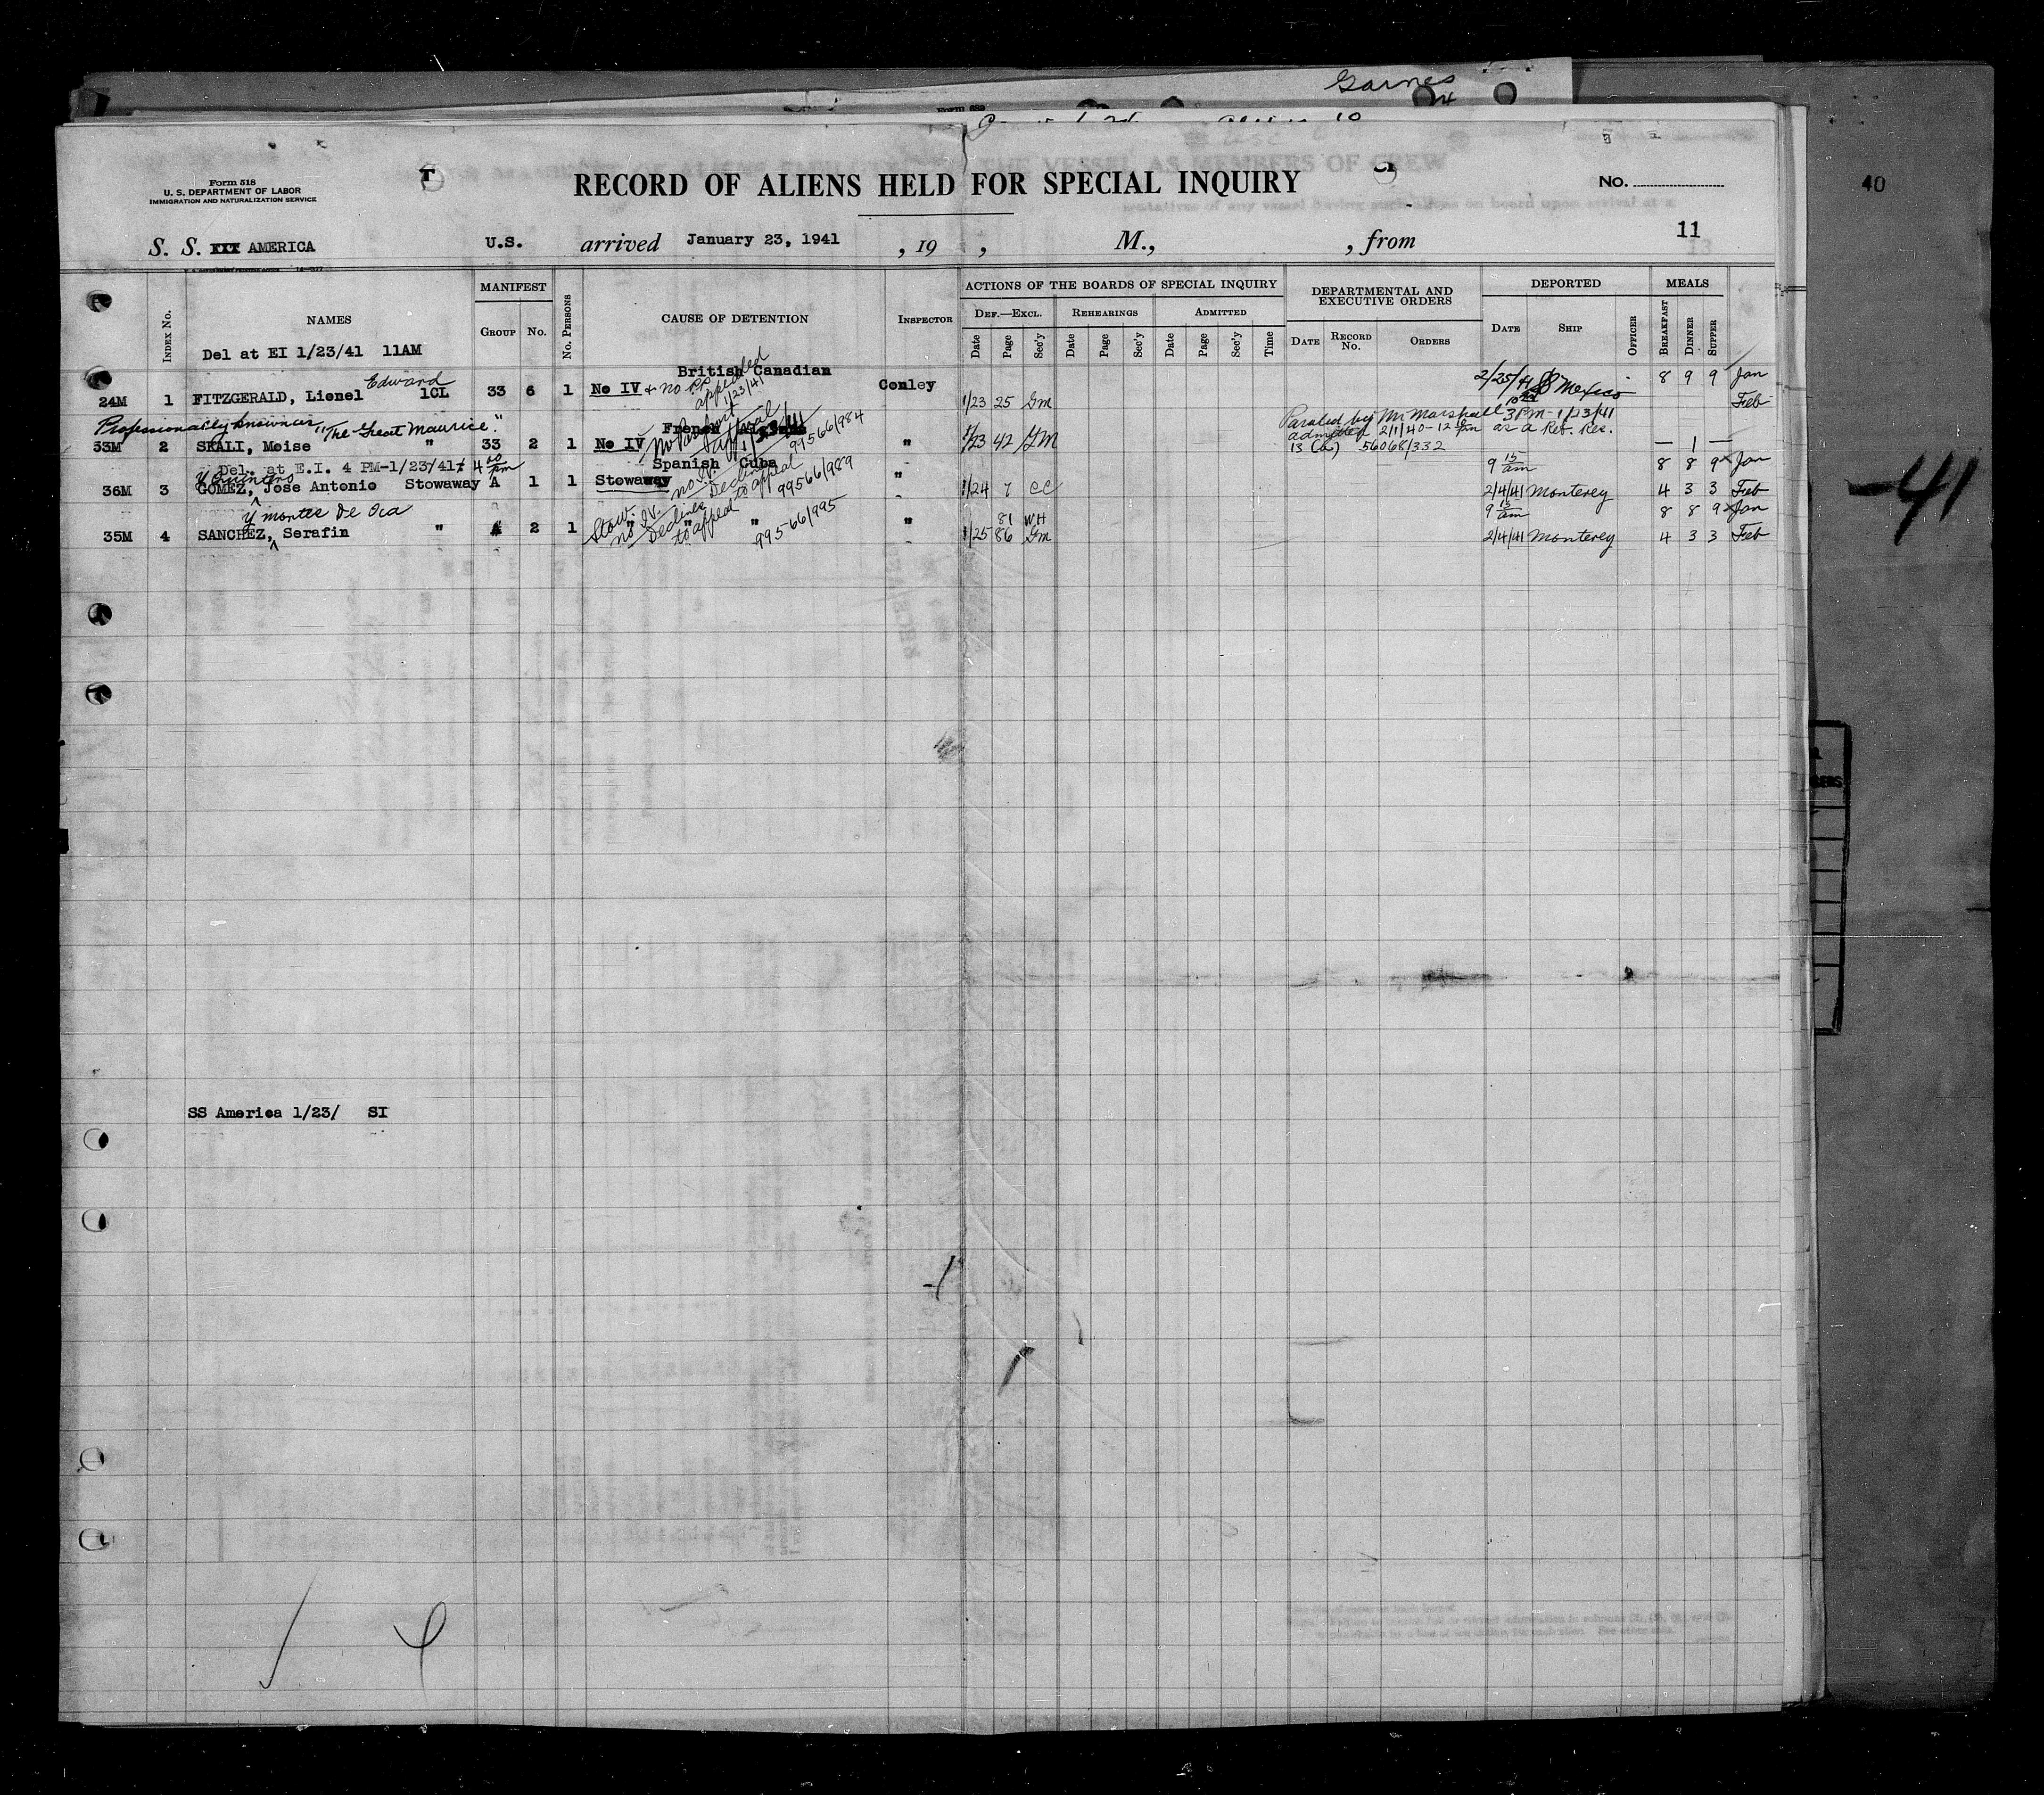 Garnes
Form 518
U. S. DEPARTMENT OF LABOR
IMMIGRATION AND NATURALIZATION SERVICE
RECORD OF ALIENS HELD FOR SPECIAL INQUIRY
No.
40
S. S. AMERICA U.S. arrived January 23, 1941, 19 , M., , from 11
Index No. NAMES MANIFEST Group No. No. Persons CAUSE OF DETENTION Inspector
ACTIONS OF THE BOARDS OF SPECIAL INQUIRY
Def.—Excl. Rehearings Admitted
Date Page Sec'y Date Page Sec'y Date Page Sec'y Time
DEPARTMENTAL AND EXECUTIVE ORDERS
Date Record No. Orders
DEPORTED Date Ship Officer
MEALS Breakfast Dinner Supper
Del at EI 1/23/41 11AM
British Canadian
24M 1 FITZGERALD, Lionel Edward 1CL 33 6 1 No IV & no PP appealed 1/23/41 Conley 1/23 25 Gm 2/25/41 SS Mexico 8 9 9 Jan
Feb
Professionally known as "The Great Maurice."
French
33M 2 SKALI, Moise " 33 2 1 No IV, 99566/984 " 1/23 42 GM Paroled by Mr Marshall 3PM-1/23/41
admitted 2/1/40-12 pm as a Ret. Res.
13 (a) 56068/332 — 1 —
Del. at E.I. 4 PM-1/23/41
Spanish Cuba
36M 3 GOMEZ, y Quintero Jose Antonio Stowaway A 1 1 Stowaway no IV. Declines to appeal 99566/989 " 1/24 7 CC 9 15 am 8 8 9 Jan
2/4/41 Monterey 4 3 3 Feb
y montes De Oca
35M 4 SANCHEZ, Serafin " A 2 1 Stow. no IV. Declines to appeal " " 99566/995 " 81 WH 9 15 am 8 8 9 Jan
1/25 86 Gm 2/4/41 Monterey 4 3 3 Feb
-41
SS America 1/23/ SI